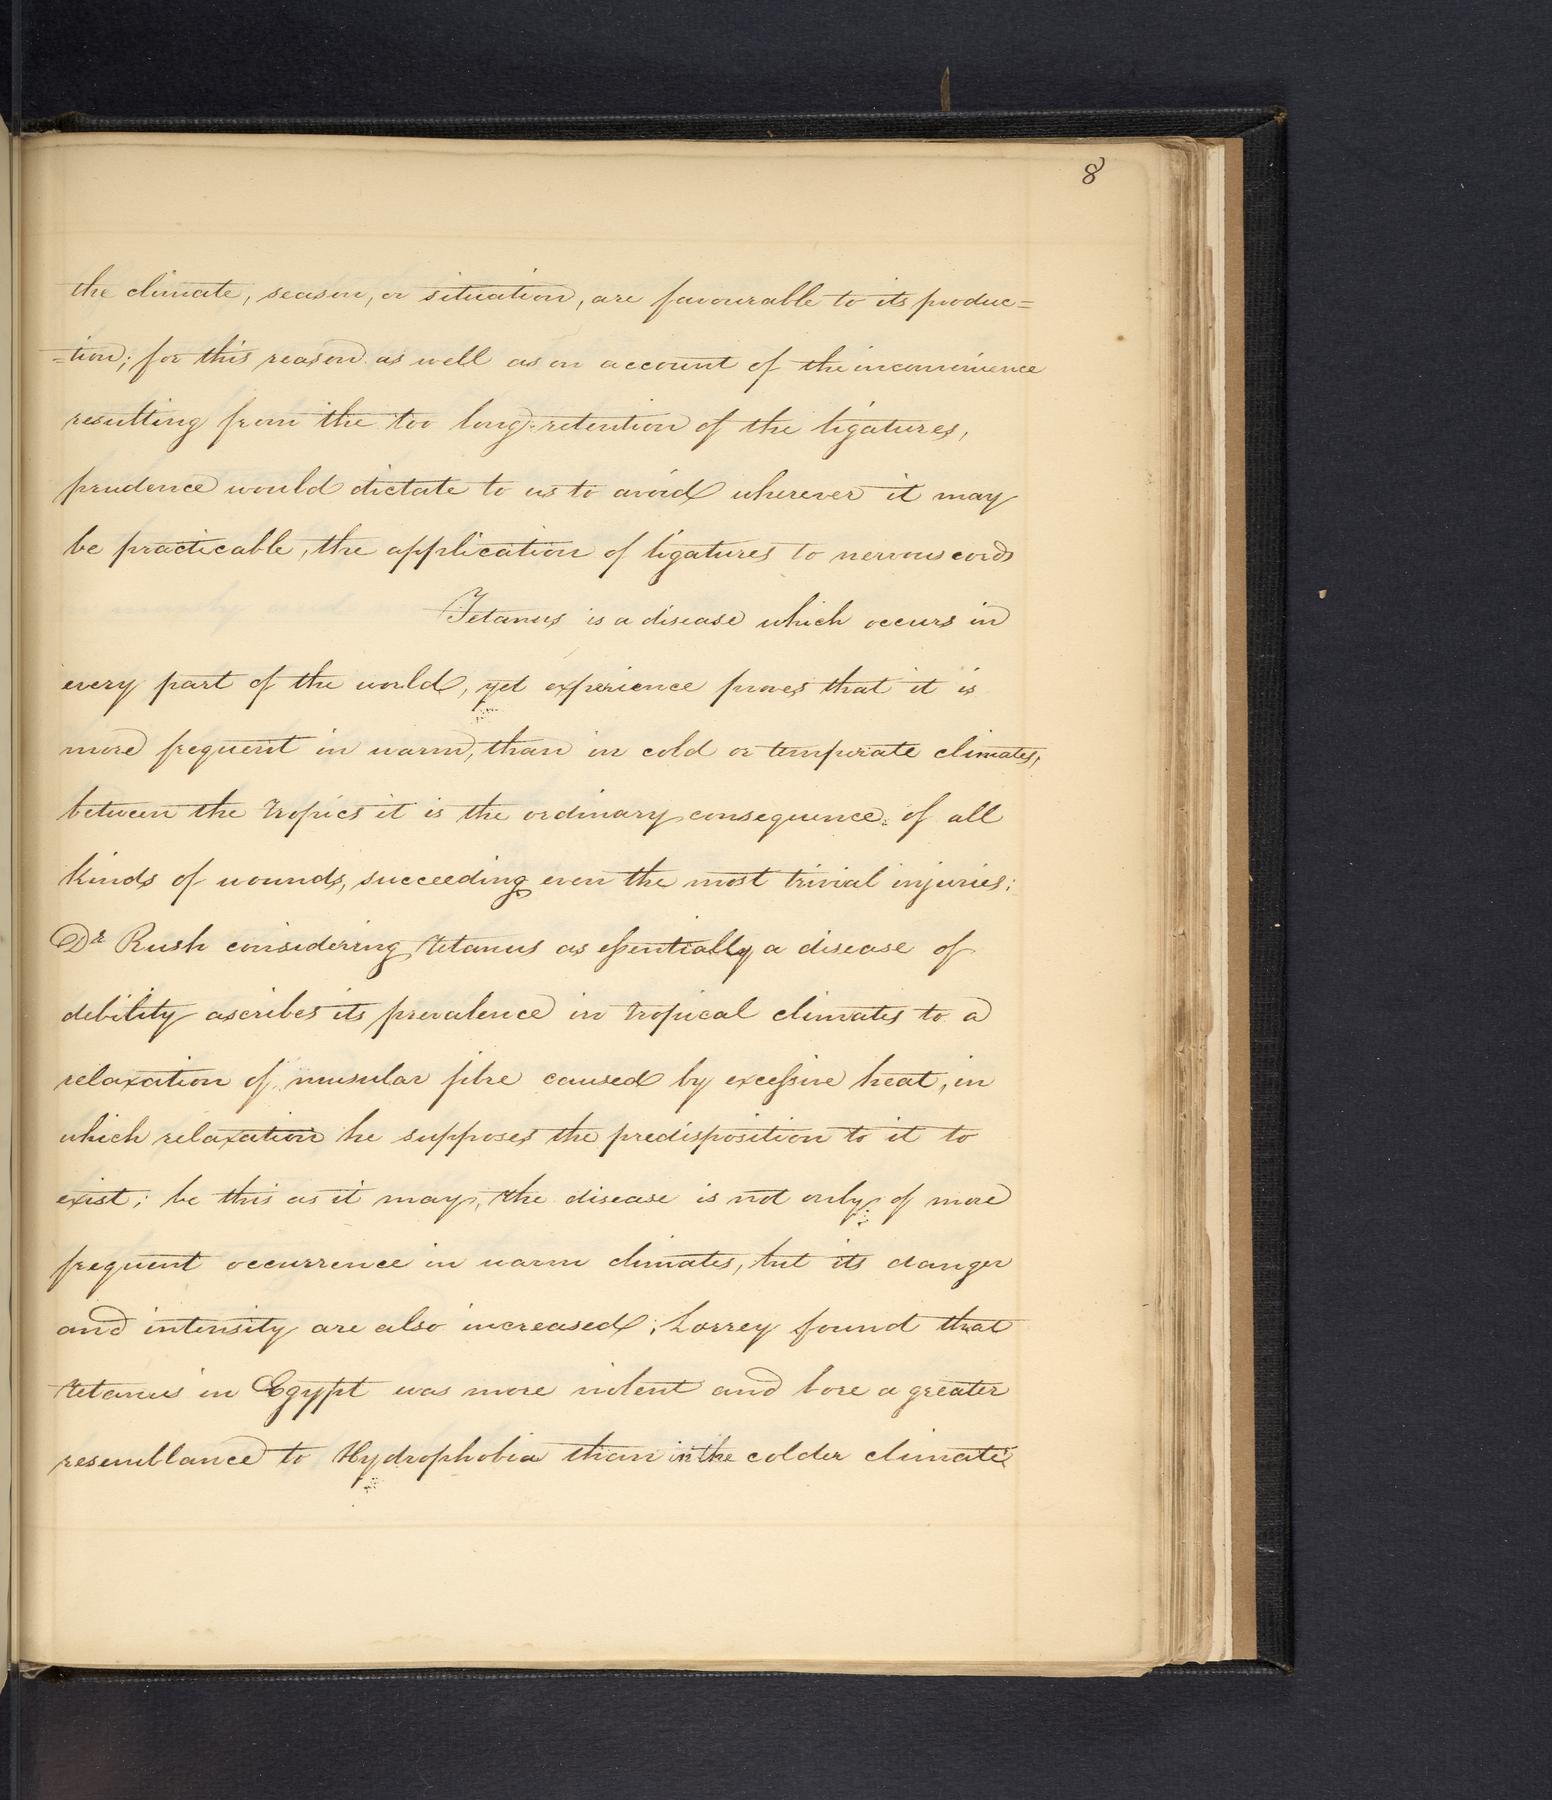 8
the climate, season, or situation, are favourable to its produc=
=tion; for this reason as well as on account of the inconvenience
resulting from the too long retention of the ligatures,
prudence would dictate to us to avoid wherever it may
be practicable, the application of ligatures to nervous cords
Tetanus is a disease which occurs in
every part of the world, yet experience proves that it is
more frequent in warm, than in cold or temperate climates,
between the tropics it is the ordinary consequence of all
kinds of wounds, succeeding even the most trivial injuries;
Dr Rush considering tetanus as eſsentially a disease of
debility ascribes its prevalence in tropical climates to a
relaxation of musular fibre caused by exceſsive heat, in
which relaxation he supposes the predisposition to it to
exist; be this as it may, the disease is not only of more
frequent occurrence in warm climates, but its danger
and intensity are also increased; Larrey found that
tetanus in Egypt was more violent and bore a greater
resemblance to Hydrophobia than in the colder climate